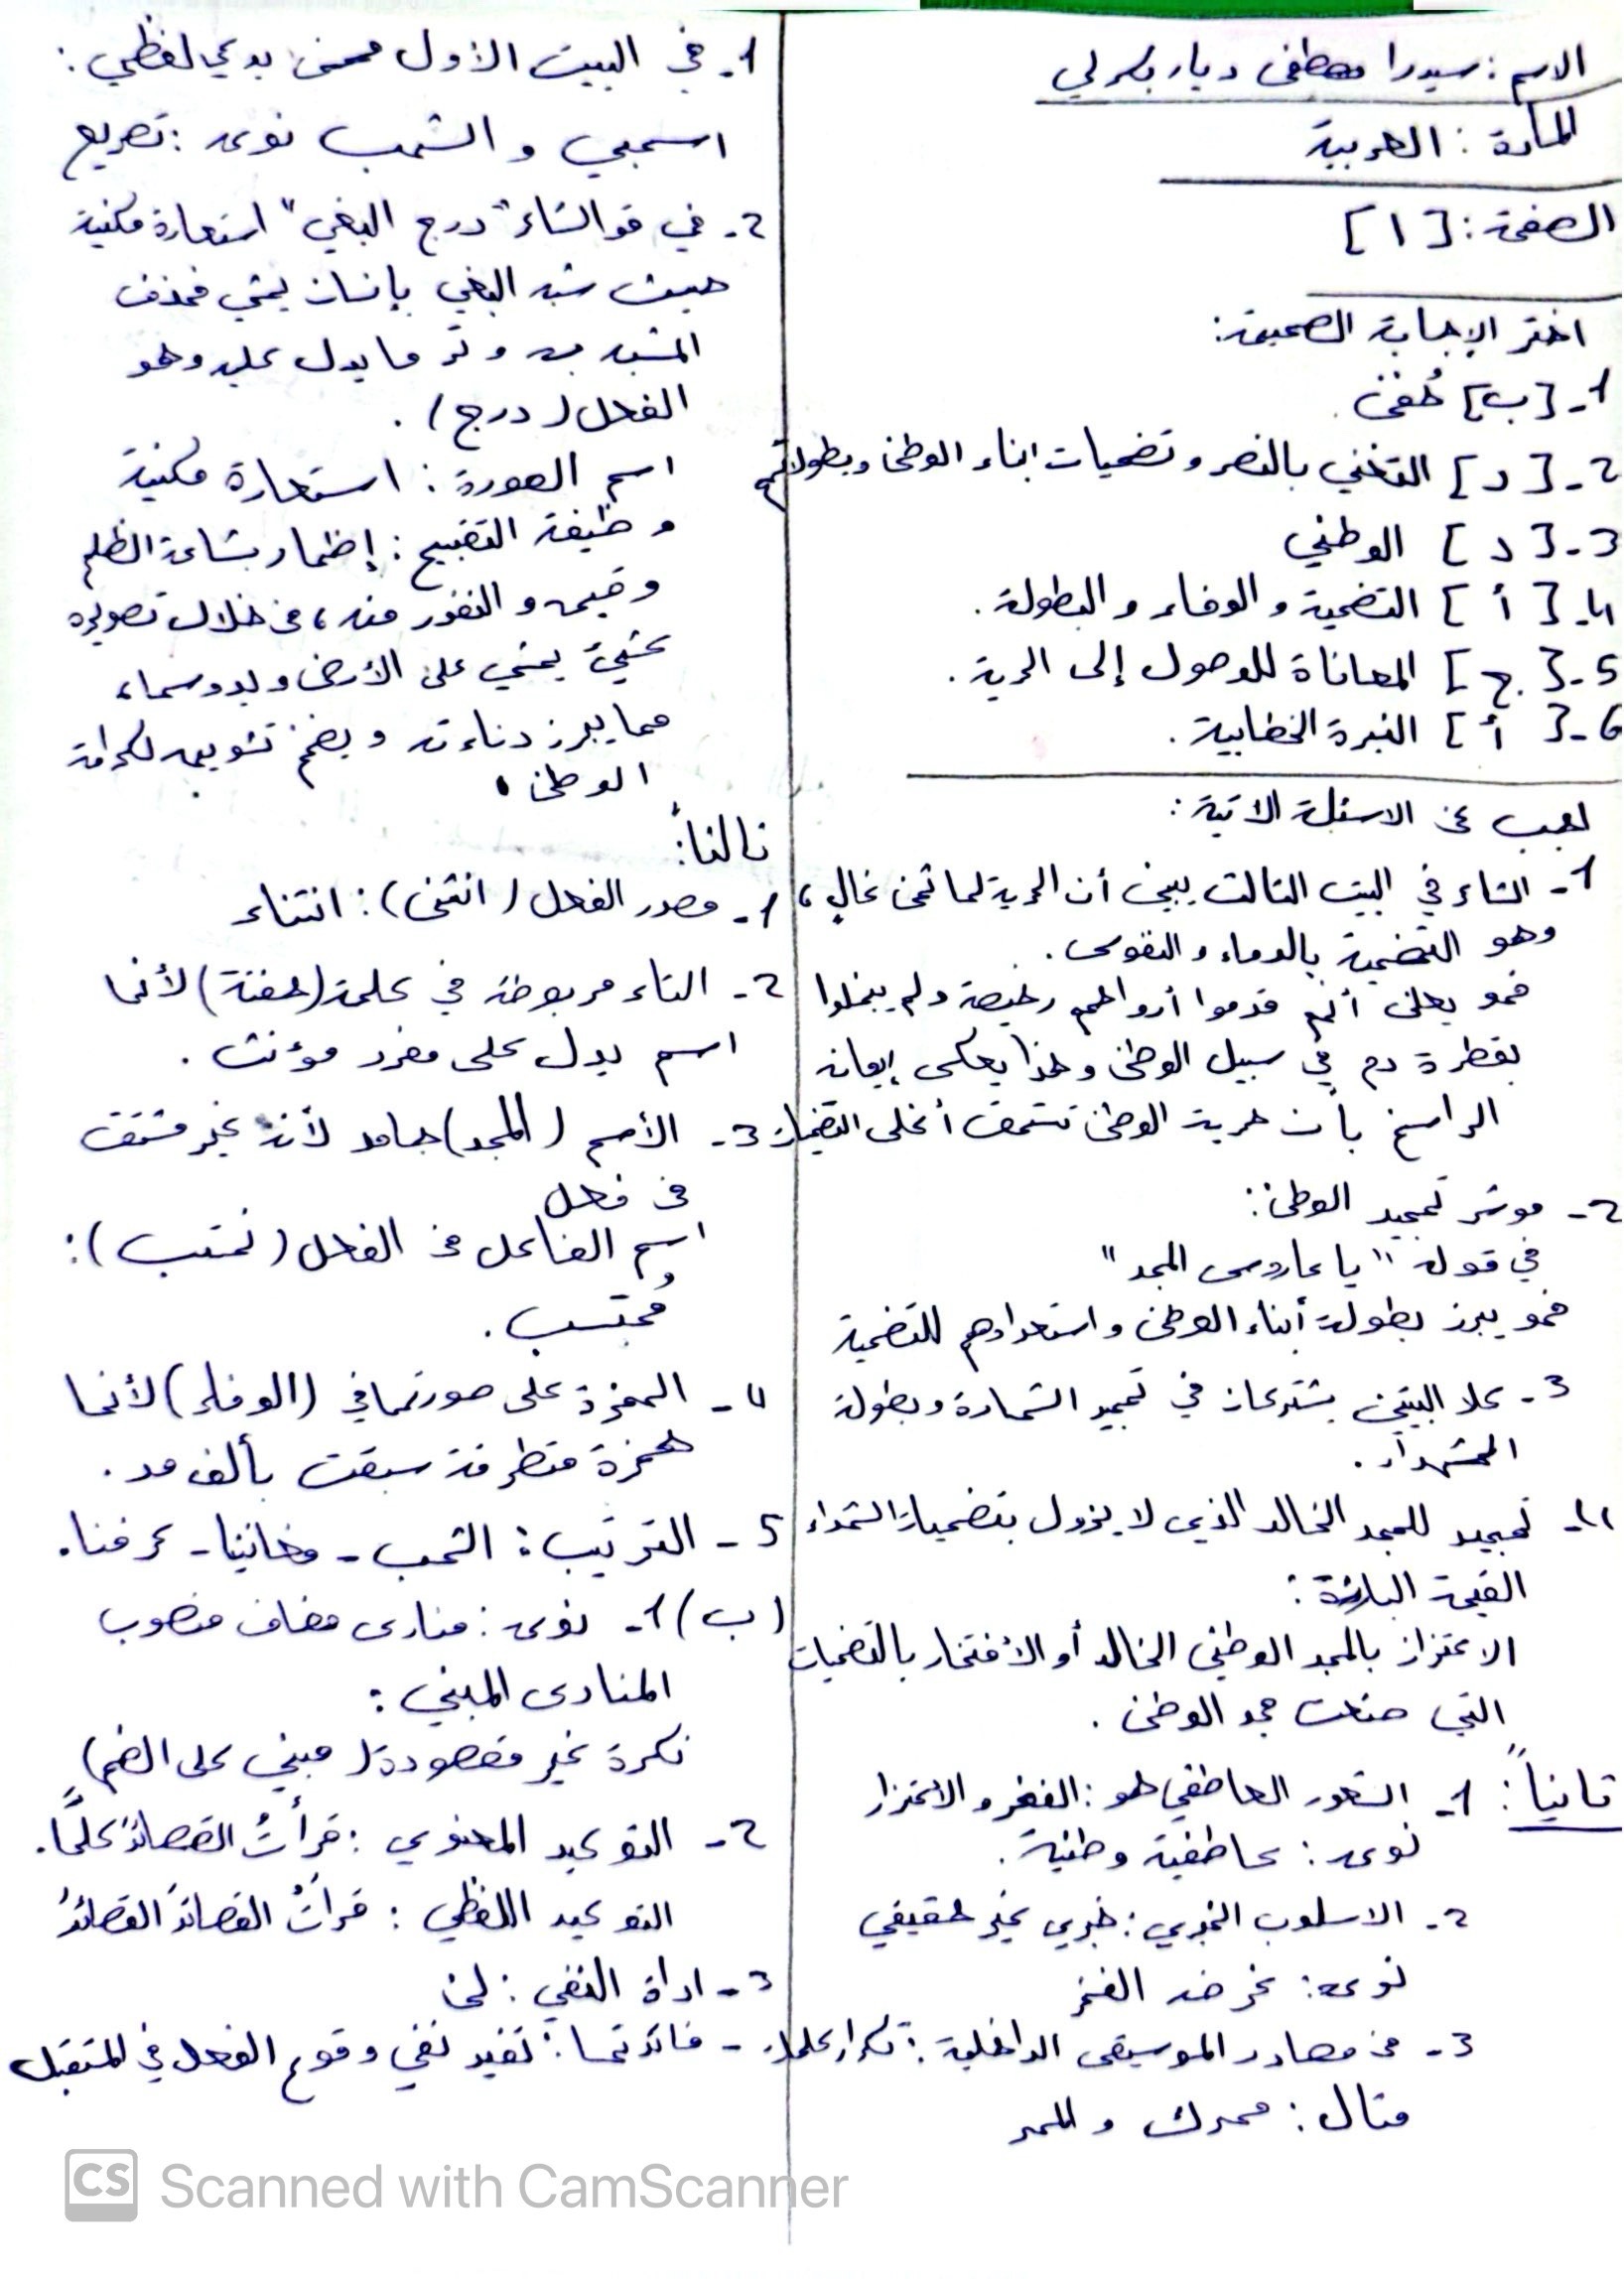 الاسم : سيدرا مصطفى ديار بكرلي
المادة : العربية
الصفحة : [ ١ ]
اختر الإجابة الصحيحة :
1- [ب] حُفَن .
2- [د] التغني بالنصر و تضحيات ابناء الوطن وبطولاتهم
3- [د] الوطني
4- [أ] التضحية و الوفاء و البطولة .
5- [ج] المعاناة للوصول إلى الحرية .
6- [أ] النبرة الخطابية .
اجب عن الاسئلة الآتية :
1- الشاعر في البيت الثالث يبين أن الحرية لها ثمن غالٍ ،
وهو التضحية بالدماء و النفوس .
فهو يعلن أنهم قدموا أرواحهم رخيصة ولم يبخلوا
بقطرة دم في سبيل الوطن وهذا يعكس إيمانه
الراسخ بأن حرية الوطن تستحق أغلى التضحيات
2- مؤشر تمجيد الوطن :
في قوله " يا عاروس المجد "
فهو يبرز بطولة أبناء الوطن و استعدادهم للتضحية
3- كلا البيتين يشتركان في تمجيد الشهادة وبطولة
الشهداء .
4- تمجيد للمجد الخالد الذي لا يزول بتضحيات الشهداء
القيمة البارزة :
الاعتزاز بالمجد الوطني الخالد أو الأفتخار بالتضحيات
التي صنعت مجد الوطن .
ثانياً : 1- الشعور العاطفي هو : الفخر و الاعتزاز
نوعه : عاطفية وطنية .
2- الاسلوب الخبري : خبري غير حقيقي
نوعه : غرضه الفخر
3- من مصادر الموسيقى الداخلية : تكرار كلمات
مثال : محرك و المهر
1- في البيت الأول محسن بديعي لفظي :
اسحبي و الشهب نوعه : تصريع
2- في قو الشاعر " درج البغي " استعارة مكنية
حيث شبه البغي بإنسان يمشي فحذف
المشبه به و ترك ما يدل عليه وهو
الفعل ( درج ) .
اسم الصورة : استعارة مكنية
وظيفة التقبيح : إظهار بشاعة الظلم
وقبحه و النفور منه ، من خلال تصويره
كشيء يمشي على الأرض ويدوسها ،
مما يبرز دناءته و يضخم تشويهه لكرامة
الوطن .
ثالثاً :
1- مصدر الفعل ( انثنى ) : انثناء
2- التاء مربوطة في كلمة ( حفنة ) لأنها
اسم يدل على مفرد مؤنث .
3- الأسم ( المجد ) جامد لأنه غير مشتق
من فعل
اسم الفاعل من الفعل ( نحتسب ) :
مُحتسب .
4- الهمزة على صورتها في ( الوفاء ) لأنها
همزة متطرفة سبقت بألف مد .
5- الترتيب : الشهب - مغانينا - عرفنا .
( ب ) 1- نوعه : منادى مضاف منصوب
المنادى المبني :
نكرة غير مقصودة ( مبني على الضم )
2- التوكيد المعنوي : قرأتُ القصائدَ كلَّها .
التوكيد اللفظي : قرأتُ القصائدَ القصائدَ
3- اداة النفي : لن
- فائدتها : تفيد نفي وقوع الفعل في المستقبل
CS Scanned with CamScanner